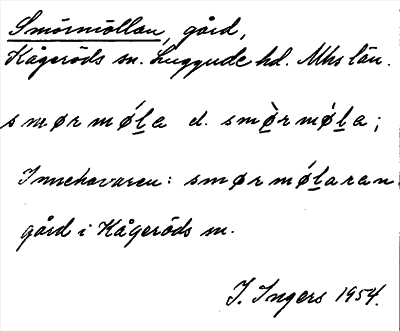 Smörmöllan, gård,
Kågeröds sn. Luggude hd. Mhs län.
smørmǿl̲a el. smø̀rmǿl̲a;
Innehavaren: smørmǿl̲aran
gård i Kågeröds sn.
I. Ingers 1954.